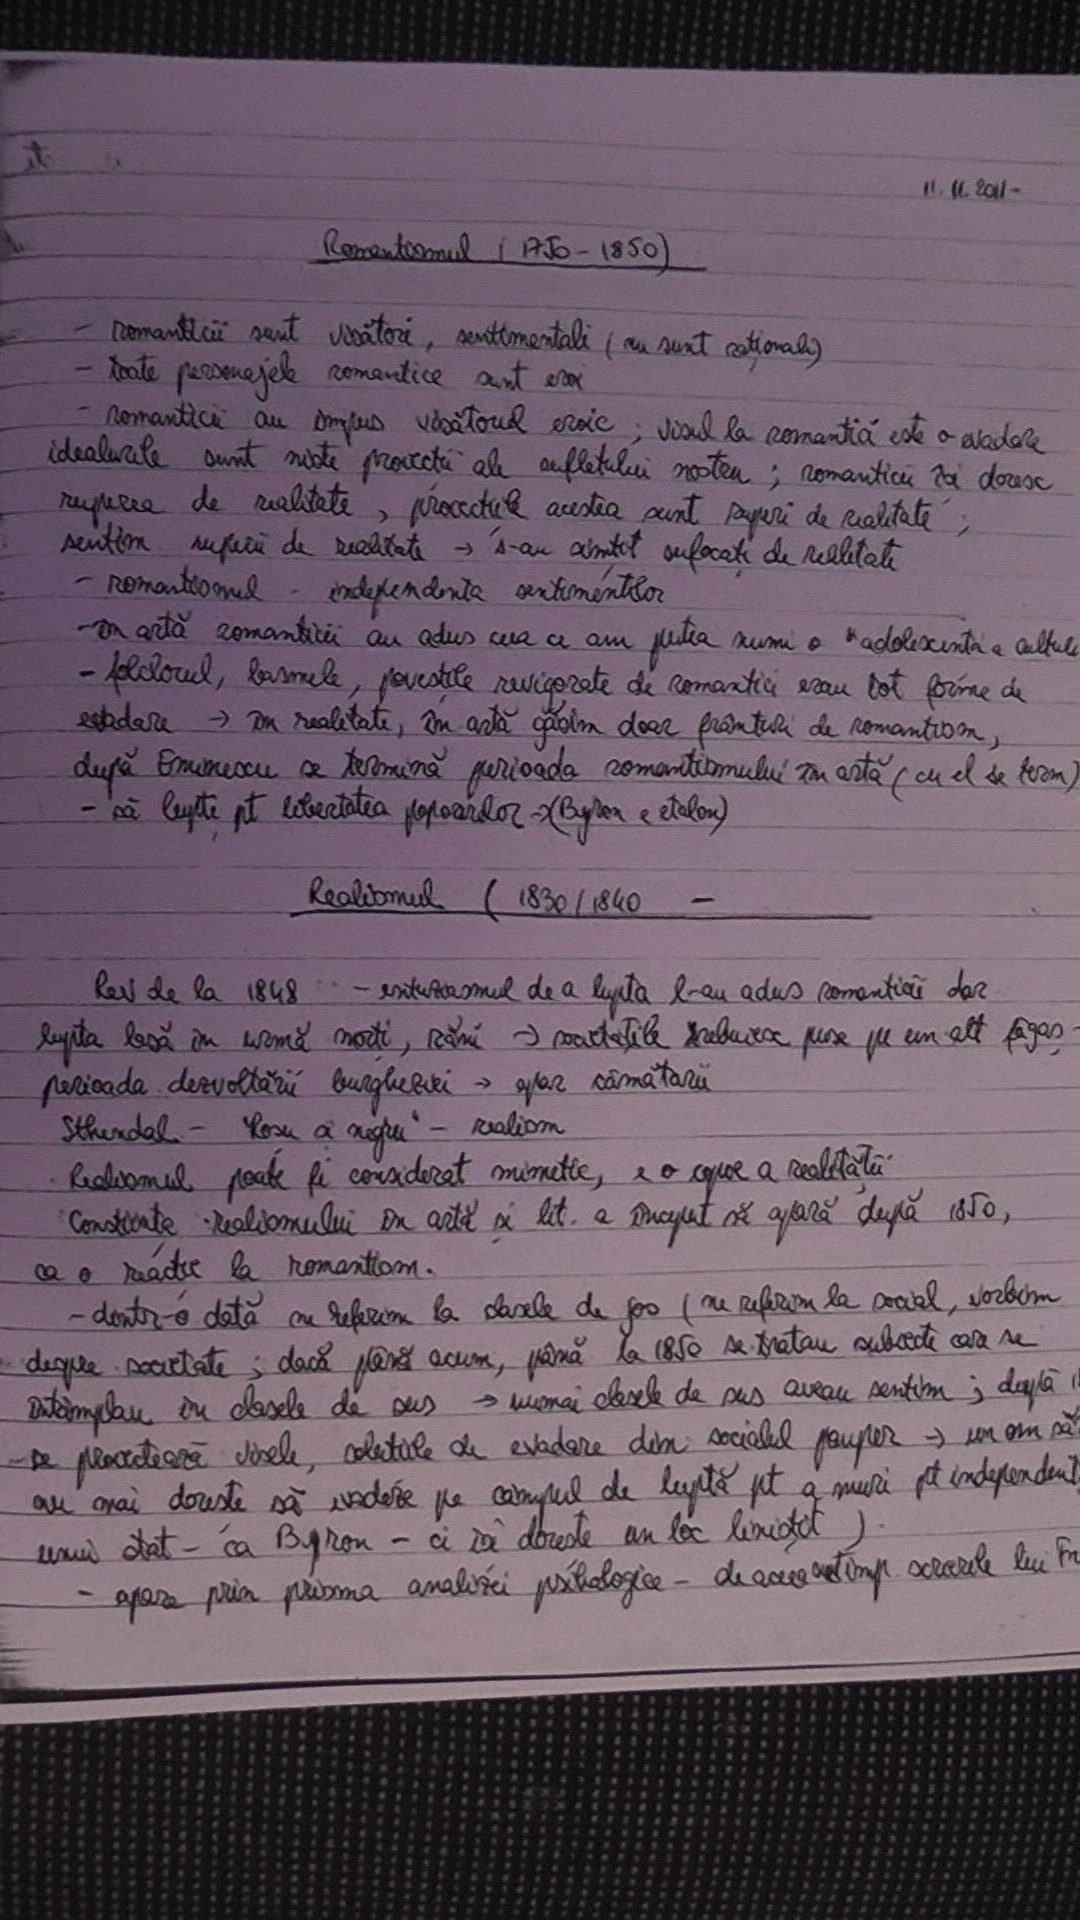 11.11.2011-
Romantismul (1750-1850)
- romanticii sunt visători, sentimentali (nu sunt raționali)
- toate personajele romantice sunt eroi
- romanticii au impus visătorul eroic ; visul la romantici este o evadare
idealurile sunt niste proiectii ale sufletului nostru ; romanticii îsi doresc
ruperea de realitate , proiectiile acestea sunt ruperi de realitate ;
sentim. ruperii de realitate → s-au simțit sufocați de realitate
- romantismul - independenta sentimentelor
- în artă romanticii au adus ceea ce am putea numi o "adolescentă a culturi
- folclorul, basmele, povestile revigorate de romantici erau tot forme de
evadare → în realitate, în artă găsim doar frânturi de romantism,
după Eminescu se termină perioada romantismului în artă (cu el se term)
- să lupte pt libertatea popoarelor → (Byron e etalon)
Realismul ( 1830/1840 -
Rev de la 1848 - entuziasmul de a lupta l-au adus romanticii dar
lupta lasă în urmă morți, răni → societațile trebuiesc puse pe un alt făgaș -
perioada dezvoltării burgheziei → apar cămătarii
Sthendal - "Rosu și negru" - realism
Realismul poate fi considerat mimetic, e o copie a realității
Constiința realismului în artă și lit. a început să apară după 1850,
ca o reactie la romantism.
- dintr-o dată ne referim la clasele de jos (ne referim la social, vorbim
despre societate ; dacă până acum, până la 1850 se tratau subiecte care se
întâmplau în clasele de sus → numai clasele de sus aveau sentim ; după
- se proiectează visele, solutiile de evadare din socialul pauper → un om
nu mai doreste să evadeze pe câmpul de luptă pt a muri pt independent
unui stat - ca Byron - ci îsi doreste un loc linistit )
- apare prin prisma analizei psihologice - de aceea timp. scrierile lui